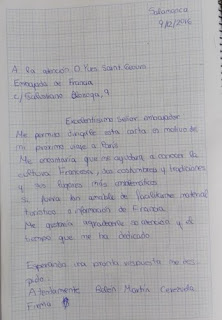 Salamanca
9/12/2016
A la atención D. Yves Saint
Embajada de Francia
c/ Salustiano Olozaga, 9
Excelentísimo Señor embajador:
Me permito dirigirle esta carta es motivo de
mi próximo viaje a París
Me encantaría que me ayudara a conocer la
cultura Francesa, sus costumbres y tradiciones
y sus lugares más emblemáticos.
Si fuera tan amable de facilitarme material
turístico e información de Francia.
Me gustaría agradecerle su atención y el
tiempo que me ha dedicado.
Esperando una pronta respuesta me des-
pido.
Atentamente Rubén Martín
Firma